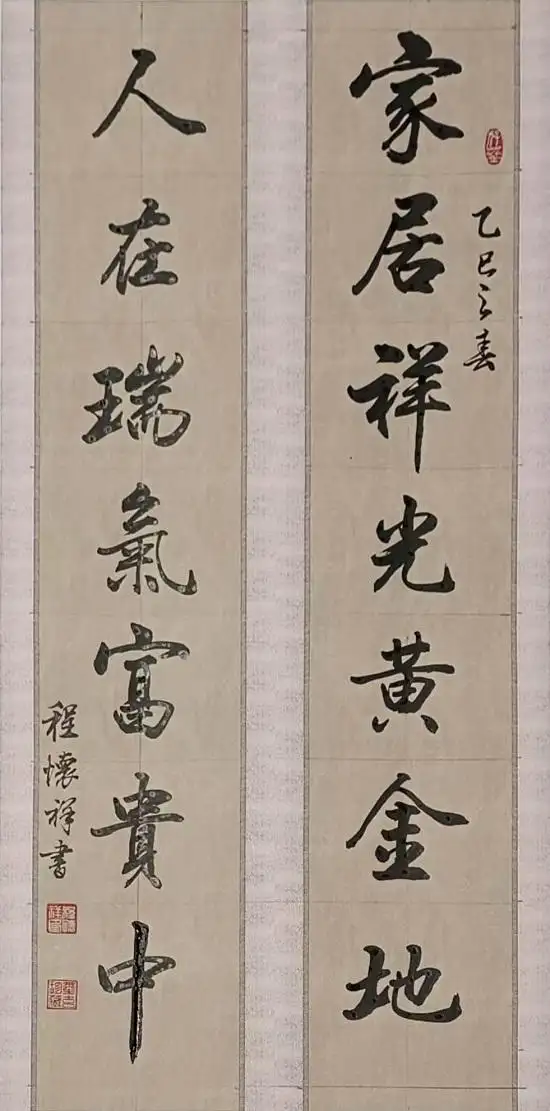 家居祥光黄金地
乙巳之春
人在瑞氣富貴中
程懷祥書